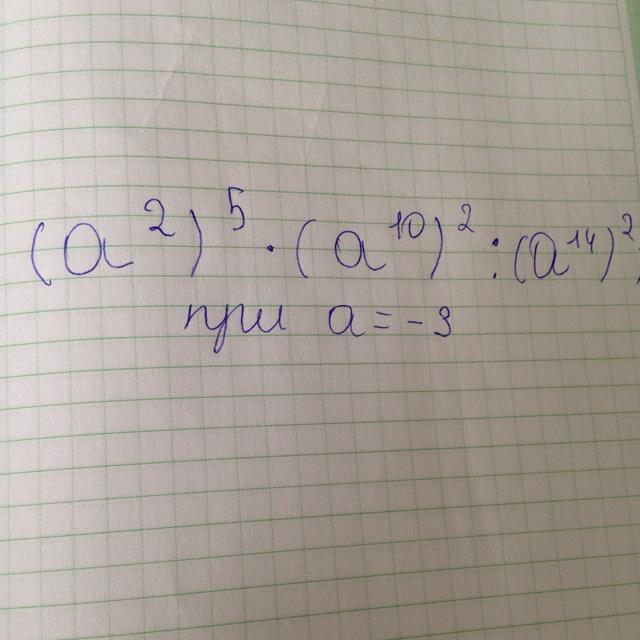 (a²)⁵ · (a¹⁰)² : (a¹⁴)²;
при a = -3